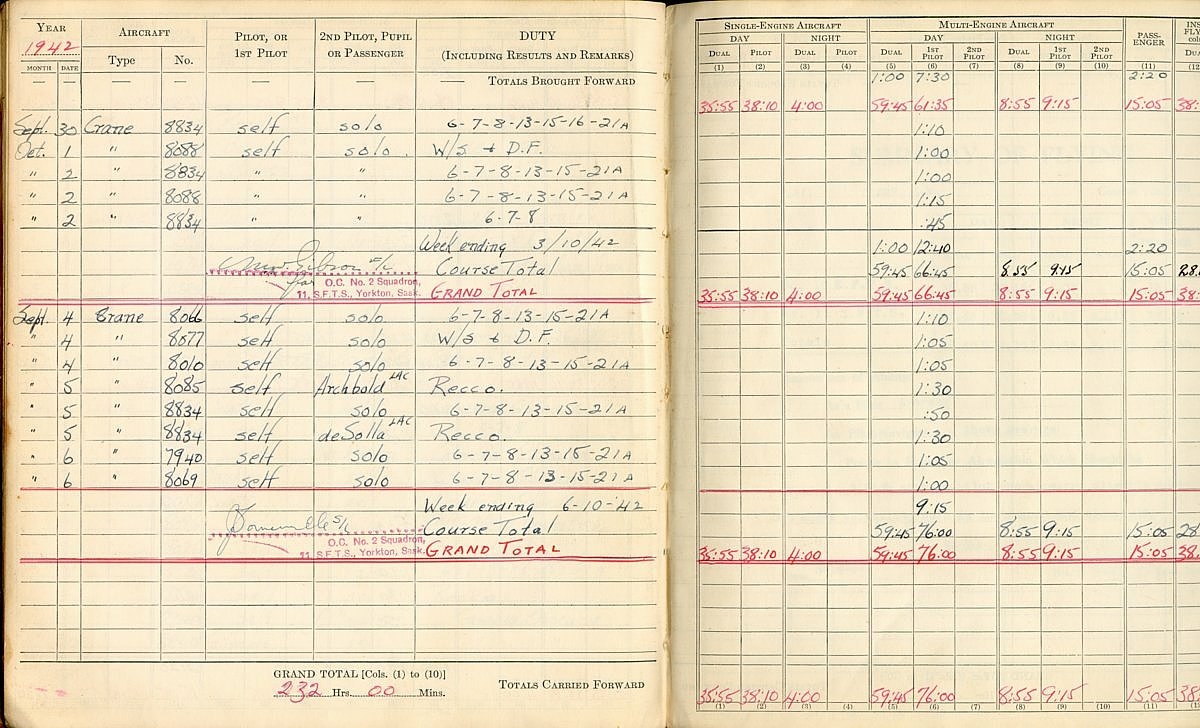 YEAR AIRCRAFT PILOT, OR 1ST PILOT 2ND PILOT, PUPIL OR PASSENGER DUTY (INCLUDING RESULTS AND REMARKS) SINGLE-ENGINE AIRCRAFT MULTI-ENGINE AIRCRAFT PASS-ENGER
1942 DAY NIGHT DAY NIGHT
MONTH DATE Type No. DUAL PILOT DUAL PILOT DUAL 1ST PILOT 2ND PILOT DUAL 1ST PILOT 2ND PILOT
(1) (2) (3) (4) (5) (6) (7) (8) (9) (10) (11) (12
— — — — — — TOTALS BROUGHT FORWARD 1:00 7:30 2:20
35:55 38:10 4:00 59:45 61:35 8:55 9:15 15:05 38:
Sept. 30 Crane 8834 self solo 6-7-8-13-15-16-21A 1:10
Oct. 1 " 8088 self solo. W/S + D.F. 1:00
" 2 " 8834 " " 6-7-8-13-15-21A 1:00
" 2 " 8088 " " 6-7-8-13-15-21A 1:15
" 2 " 8834 " " 6-7-8 :45
Week ending 3/10/42 1:00 12:40 2:20
Gibson F/L Course Total 59:45 66:45 8:55 9:15 15:05 28.
for O.C. No. 2 Squadron,
11, S.F.T.S., Yorkton, Sask. GRAND TOTAL 35:55 38:10 4:00 59:45 66:45 8:55 9:15 15:05 38:
Sept. 4 Crane 8066 self solo 6-7-8-13-15-21A 1:10
" 4 " 8077 self solo W/S + D.F. 1:05
" 4 " 8010 self solo 6-7-8-13-15-21A 1:05
" 5 " 8085 self Archbold LAC Recco. 1:30
" 5 " 8834 self solo 6-7-8-13-15-21A :50
" 5 " 8834 self deSolla LAC Recco. 1:30
" 6 " 7940 self solo 6-7-8-13-15-21A 1:05
" 6 " 8069 self solo 6-7-8-13-15-21A 1:00
Week ending 6-10-42 9:15
S/L Course Total 59:45 76:00 8:55 9:15 15:05 28
O.C. No. 2 Squadron,
11, S.F.T.S., Yorkton, Sask. GRAND TOTAL 35:55 38:10 4:00 59:45 76:00 8:55 9:15 15:05 38.
GRAND TOTAL [Cols. (1) to (10)]
232 Hrs. 00 Mins. TOTALS CARRIED FORWARD 35:55 38:10 4:00 59:45 76:00 8:55 9:15 15:05 38:
(1) (2) (3) (4) (5) (6) (7) (8) (9) (10) (11) (12